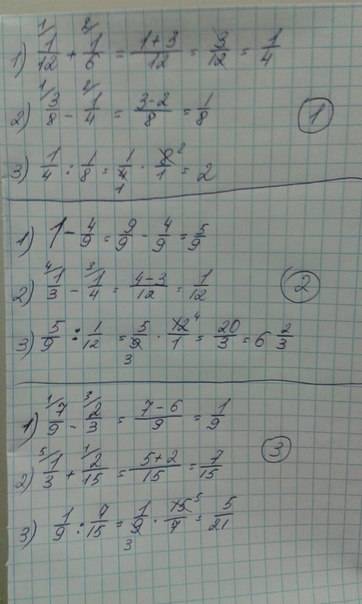 1) ¹/1/12 + ²/1/6 = (1+3)/12 = 3/12 = 1/4
2) ¹/3/8 − ²/1/4 = (3−2)/8 = 1/8
1
3) 1/4 : 1/8 = 1/4 · 8/1 = 2
1) 1 − 4/9 = 9/9 − 4/9 = 5/9
2) ⁴/1/3 − ³/1/4 = (4−3)/12 = 1/12
2
3) 5/9 : 1/12 = 5/9 · 12/1 = 20/3 = 6 2/3
1) ¹/7/9 − ³/2/3 = (7−6)/9 = 1/9
2) ⁵/1/3 + ¹/2/15 = (5+2)/15 = 7/15
3
3) 1/9 : 7/15 = 1/9 · 15/7 = 5/21